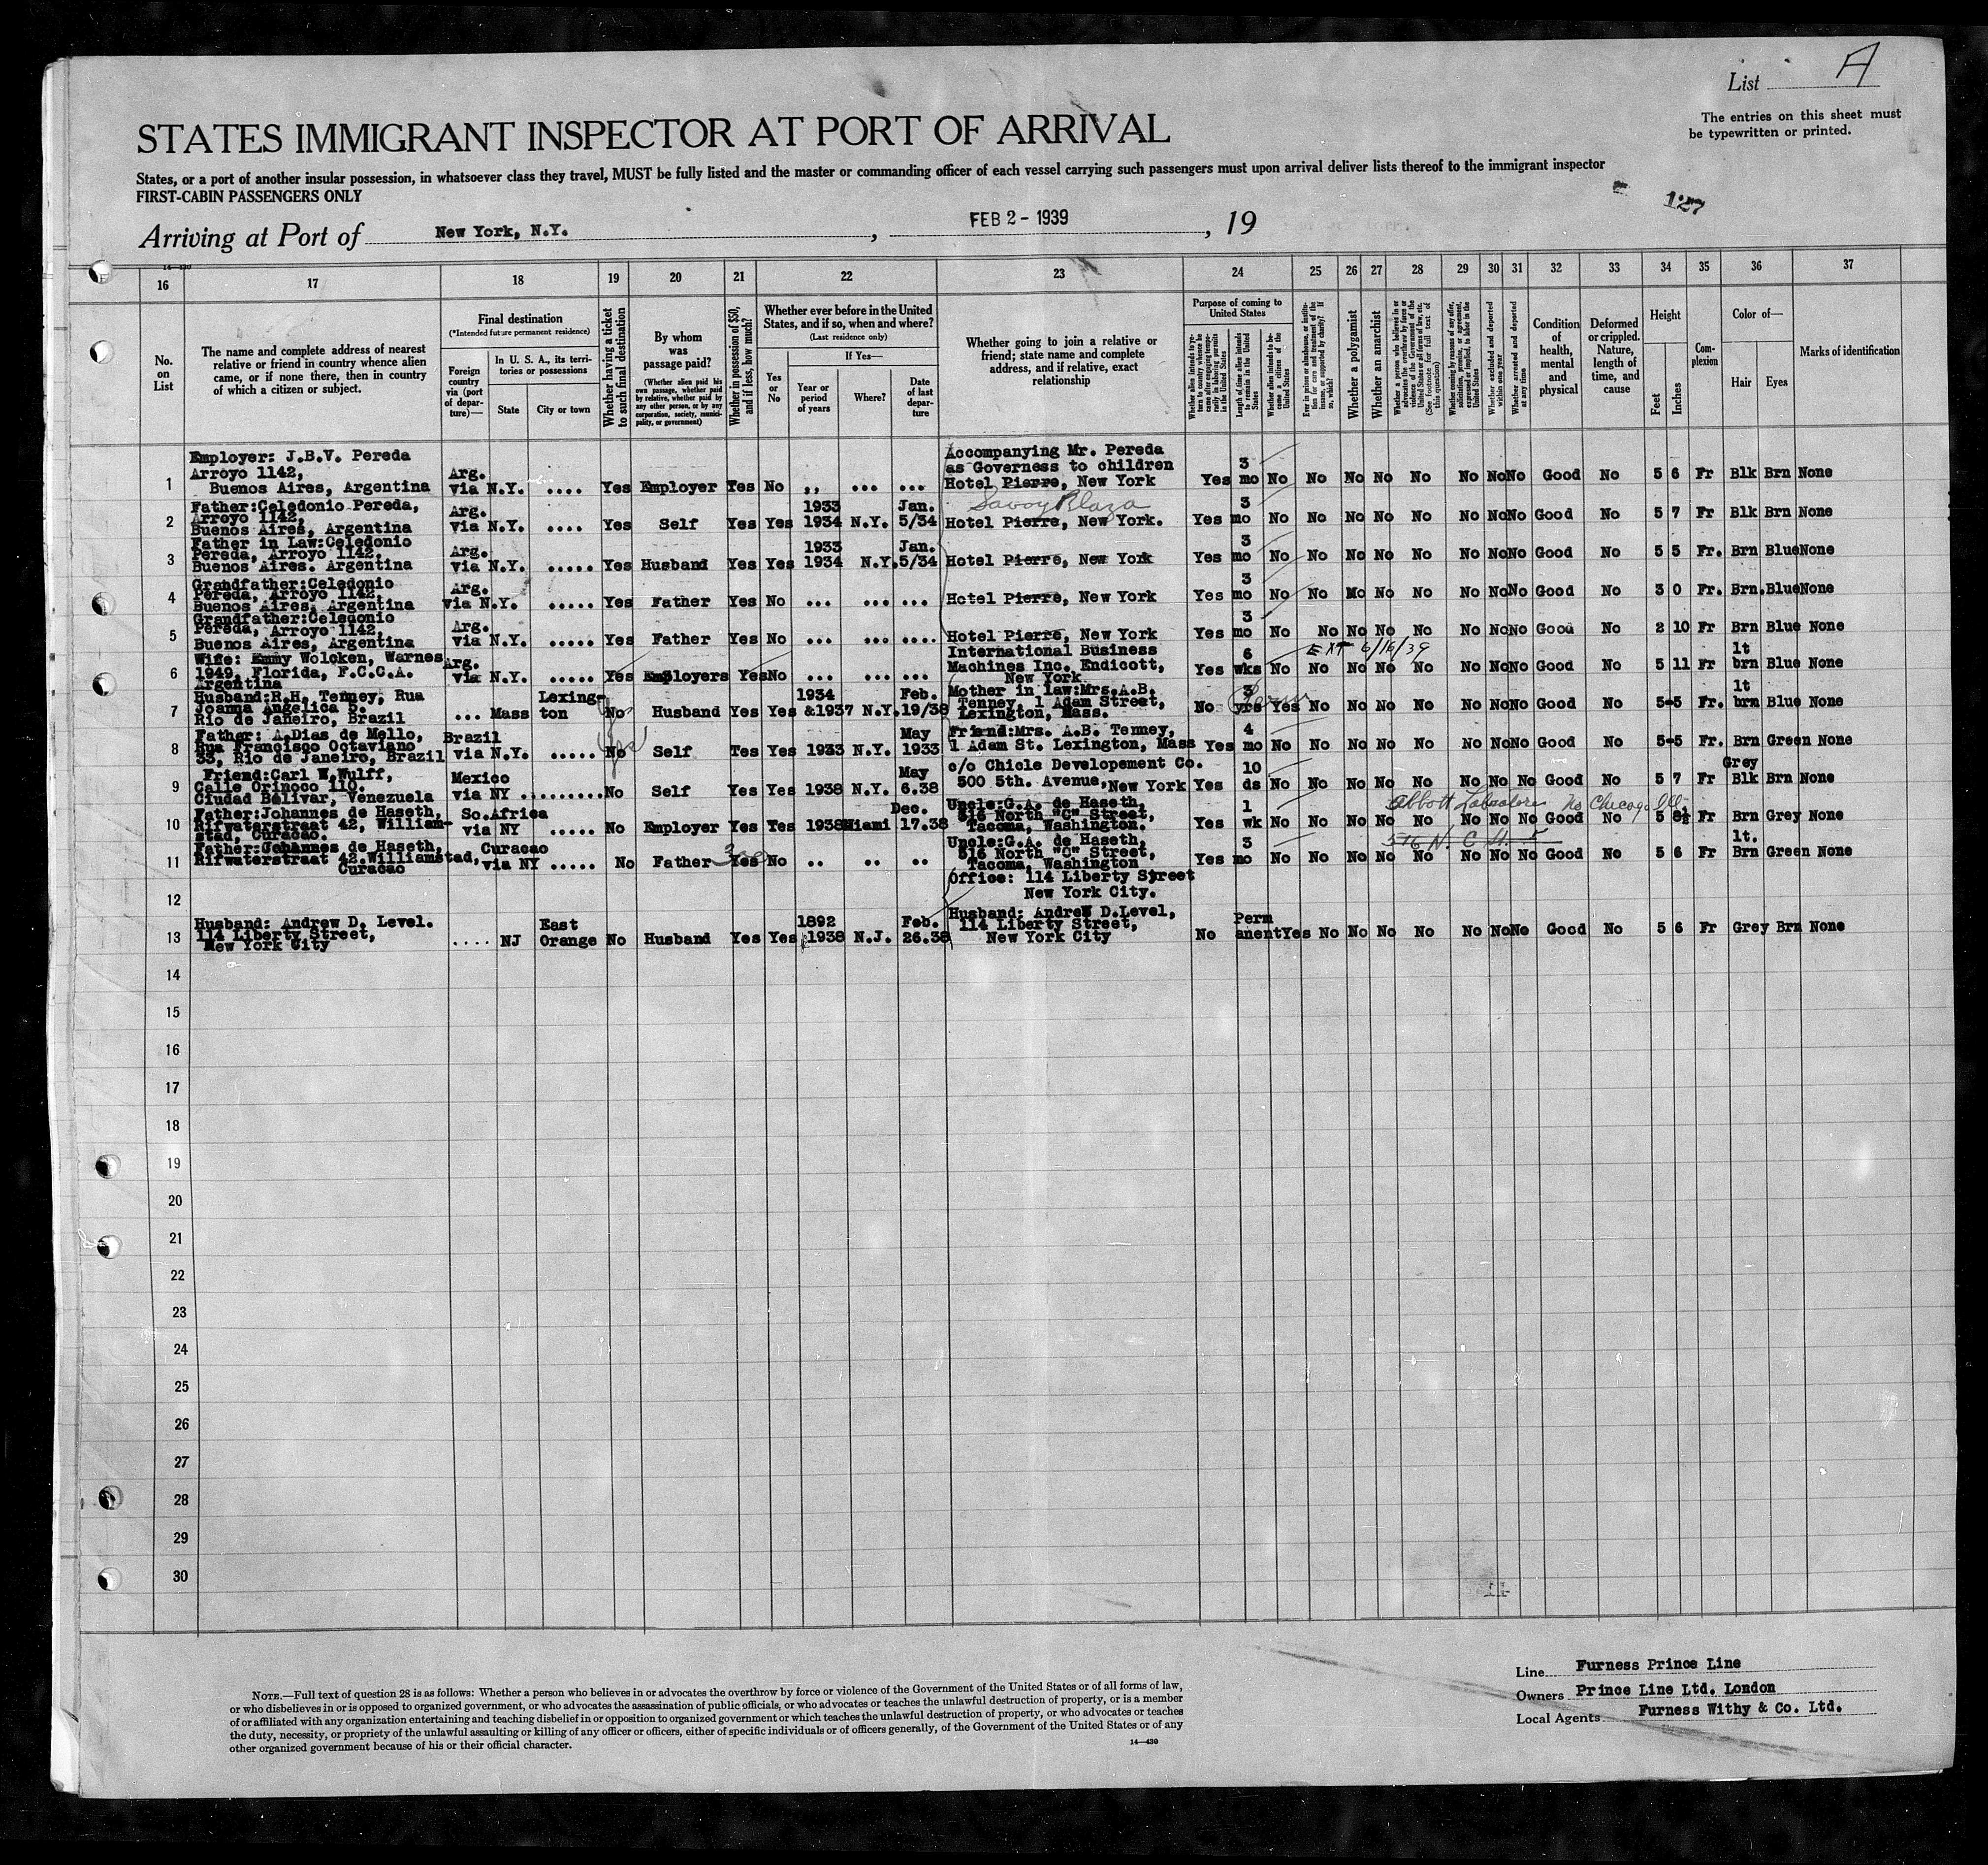 List A
The entries on this sheet must
be typewritten or printed.
STATES IMMIGRANT INSPECTOR AT PORT OF ARRIVAL
States, or a port of another insular possession, in whatsoever class they travel, MUST be fully listed and the master or commanding officer of each vessel carrying such passengers must upon arrival deliver lists thereof to the immigrant inspector
FIRST-CABIN PASSENGERS ONLY
127
Arriving at Port of New York, N.Y. , FEB 2 - 1939 , 19
14—430
16 17 18 19 20 21 22 23 24 25 26 27 28 29 30 31 32 33 34 35 36 37
No. on List
The name and complete address of nearest
relative or friend in country whence alien
came, or if none there, then in country
of which a citizen or subject.
Final destination
(*Intended future permanent residence)
Foreign country via (port of departure)—
In U. S. A., its territories or possessions
State
City or town
Whether having a ticket to such final destination
By whom was passage paid?
(Whether alien paid his own passage, whether paid by relative, whether paid by any other person, or by any corporation, society, municipality, or government)
Whether in possession of $50, and if less, how much?
Whether ever before in the United States, and if so, when and where?
(Last residence only)
Yes or No
If Yes—
Year or period of years
Where?
Date of last departure
Whether going to join a relative or
friend; state name and complete
address, and if relative, exact
relationship
Purpose of coming to United States
Whether alien intends to return to country whence he came after engaging temporarily in laboring pursuits in the United States
Length of time alien intends to remain in the United States
Whether alien intends to become a citizen of the United States
Ever in prison or almshouse, or institution for care and treatment of the insane, or supported by charity? If so, which?
Whether a polygamist
Whether an anarchist
Whether a person who believes in or advocates the overthrow by force or violence of the Government of the United States or all forms of law, etc. (See footnote for full text of this question)
Whether coming by reasons of any offer, solicitation, promise, or agreement, expressed or implied, to labor in the United States
Whether excluded and deported within one year
Whether arrested and deported at any time
Condition of health, mental and physical
Deformed or crippled. Nature, length of time, and cause
Height
Feet
Inches
Complexion
Color of—
Hair
Eyes
Marks of identification
1 Employer: J.B.V. Pereda Arroyo 1142, Buenos Aires, Argentina Arg. via N.Y. .... Yes Employer Yes No ,, ... ... Accompanying Mr. Pereda as Governess to children Hotel Pierre, New York Yes 3 mo No No No No No No No No Good No 5 6 Fr Blk Brn None
Savoy Plaza
2 Father:Celedonio Pereda, Arroyo 1142, Buenos Aires, Argentina Arg. via N.Y. .... Yes Self Yes Yes 1933 1934 N.Y. Jan. 5/34 Hotel Pierre, New York. Yes 3 mo No No No No No No No No Good No 5 7 Fr Blk Brn None
3 Father in Law:Celedonio Pereda, Arroyo 1142, Buenos Aires. Argentina Arg. via N.Y. ..... Yes Husband Yes Yes 1933 1934 N.Y. Jan. 5/34 Hotel Pierre, New York Yes 3 mo No No No No No No No No Good No 5 5 Fr. Brn Blue None
4 Grandfather:Celedonio Pereda, Arroyo 1142, Buenos Aires, Argentina Arg. via N.Y. ..... Yes Father Yes No ... ... ... Hotel Pierre, New York Yes 3 mo No No No No No No No No Good No 3 0 Fr. Brn. Blue None
5 Grandfather:Celedonio Pereda, Arroyo 1142, Buenos Aires, Argentina Arg. via N.Y. ..... Yes Father Yes No ... ... .... Hotel Pierre, New York Yes 3 mo No No No No No No No No Good No 2 10 Fr Brn Blue None
EXT 6/16/39
6 Wife: Emmy Wolcken, Warnes 1949, Florida, F.C.C.A. Argentina Arg. via N.Y. ..... Yes Employers Yes No ... ... ... International Business Machines Inc. Endicott, New York Yes 6 wks No No No No No No No No Good No 5 11 Fr lt brn Blue None
7 Husband:R.H. Tenney, Rua Joanna Angelica 5. Rio de Janeiro, Brazil ... Mass Lexington No Husband Yes Yes 1934 &1937 N.Y. Feb. 19/38 Mother in law:Mrs.A.B. Tenney, 1 Adam Street, Lexington, Mass. No 3 yrs Perm Yes No No No No No No No Good No 5-5 Fr. lt brn Blue None
8 Father: A.Dias de Mello, Rua Francisco Octaviano 33, Rio de Janeiro, Brazil Brazil via N.Y. ..... No Self Yes Yes 1933 N.Y. May 1933 Friend:Mrs. A.B. Tenney, 1 Adam St. Lexington, Mass Yes 4 mo No No No No No No No No Good No 5-5 Fr. Brn Green None
9 Friend:Carl W.Wulff, Calle Orinoco 110. Ciudad Bolivar, Venezuela Mexico via NY ......... No Self Yes Yes 1938 N.Y. May 6.38 c/o Chicle Developement Co. 500 5th. Avenue, New York Yes 10 ds No No No No No No No No Good No 5 7 Fr Grey Blk Brn None
Abbott Laboratores No Chicago Ill
10 Father:Johannes de Haseth, Rifwaterstraat 42, Williamstad, Curacao. So.Africa via NY ..... No Employer Yes Yes 1938 Miami Dec. 17.38 Uncle:G.A. de Haseth, 516 North "C" Street, Tacoma, Washington. Yes 1 wk No No No No No No No No Good No 5 8½ Fr Brn Grey None
516 N. C St.
11 Father:Johannes de Haseth, Rifwaterstraat 42.Williamstad, Curacao Curacao via NY ..... No Father 300 Yes No .. .. .. Uncle:G.A. de Haseth, 516 North "C" Street, Tacoma, Washington Yes 3 mo No No No No No No No No Good No 5 6 Fr lt. Brn Green None
12 Office: 114 Liberty Street New York City.
13 Husband: Andrew D. Level. 114 Liberty Street, New York City .... NJ East Orange No Husband Yes Yes 1892 1938 N.J. Feb. 26.38 Husband: Andrew D.Level, 114 Liberty Street, New York City No Permanent Yes No No No No No No No Good No 5 6 Fr Grey Brn None
14
15
16
17
18
19
20
21
22
23
24
25
26
27
28
29
30
NOTE.—Full text of question 28 is as follows: Whether a person who believes in or advocates the overthrow by force or violence of the Government of the United States or of all forms of law,
or who disbelieves in or is opposed to organized government, or who advocates the assassination of public officials, or who advocates or teaches the unlawful destruction of property, or is a member
of or affiliated with any organization entertaining and teaching disbelief in or opposition to organized government or which teaches the unlawful destruction of property, or who advocates or teaches
the duty, necessity, or propriety of the unlawful assaulting or killing of any officer or officers, either of specific individuals or of officers generally, of the Government of the United States or of any
other organized government because of his or their official character.
14—430
Line Furness Prince Line
Owners Prince Line Ltd. London
Local Agents Furness Withy & Co. Ltd.